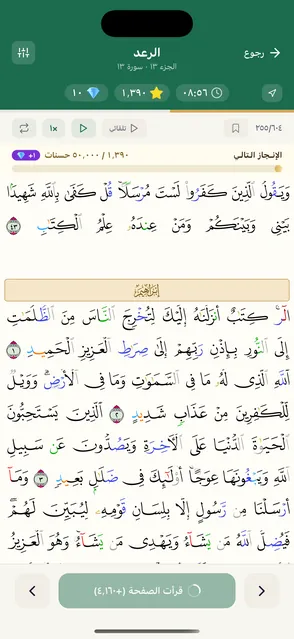 رجوع
الرعد
الجزء ١٣ • سورة ١٣
٠٨:٥٦
١,٣٩٠
١٠
٢٥٥/٦٠٤
تلقائي
١x
الإنجاز التالي
١,٣٩٠ / ٥٠,٠٠٠ حسنات
+١
وَيَقُولُ ٱلَّذِينَ كَفَرُوا۟ لَسْتَ مُرْسَلًا ۚ قُلْ كَفَىٰ بِٱللَّهِ شَهِيدًۢا
بَيْنِى وَبَيْنَكُمْ وَمَنْ عِندَهُۥ عِلْمُ ٱلْكِتَـٰبِ ٤٣
إبراهيم
الٓر ۚ كِتَـٰبٌ أَنزَلْنَـٰهُ إِلَيْكَ لِتُخْرِجَ ٱلنَّاسَ مِنَ ٱلظُّلُمَـٰتِ
إِلَى ٱلنُّورِ بِإِذْنِ رَبِّهِمْ إِلَىٰ صِرَٰطِ ٱلْعَزِيزِ ٱلْحَمِيدِ ١
ٱللَّهِ ٱلَّذِى لَهُۥ مَا فِى ٱلسَّمَـٰوَٰتِ وَمَا فِى ٱلْأَرْضِ ۗ وَوَيْلٌ
لِّلْكَـٰفِرِينَ مِنْ عَذَابٍ شَدِيدٍ ٢ ٱلَّذِينَ يَسْتَحِبُّونَ
ٱلْحَيَوٰةَ ٱلدُّنْيَا عَلَى ٱلْـَٔاخِرَةِ وَيَصُدُّونَ عَن سَبِيلِ
ٱللَّهِ وَيَبْغُونَهَا عِوَجًا ۚ أُو۟لَـٰٓئِكَ فِى ضَلَـٰلٍۭ بَعِيدٍ ٣ وَمَآ
أَرْسَلْنَا مِن رَّسُولٍ إِلَّا بِلِسَانِ قَوْمِهِۦ لِيُبَيِّنَ لَهُمْ ۖ
فَيُضِلُّ ٱللَّهُ مَن يَشَآءُ وَيَهْدِى مَن يَشَآءُ ۚ وَهُوَ ٱلْعَزِيزُ
قرأت الصفحة (+٤,١٦٠)